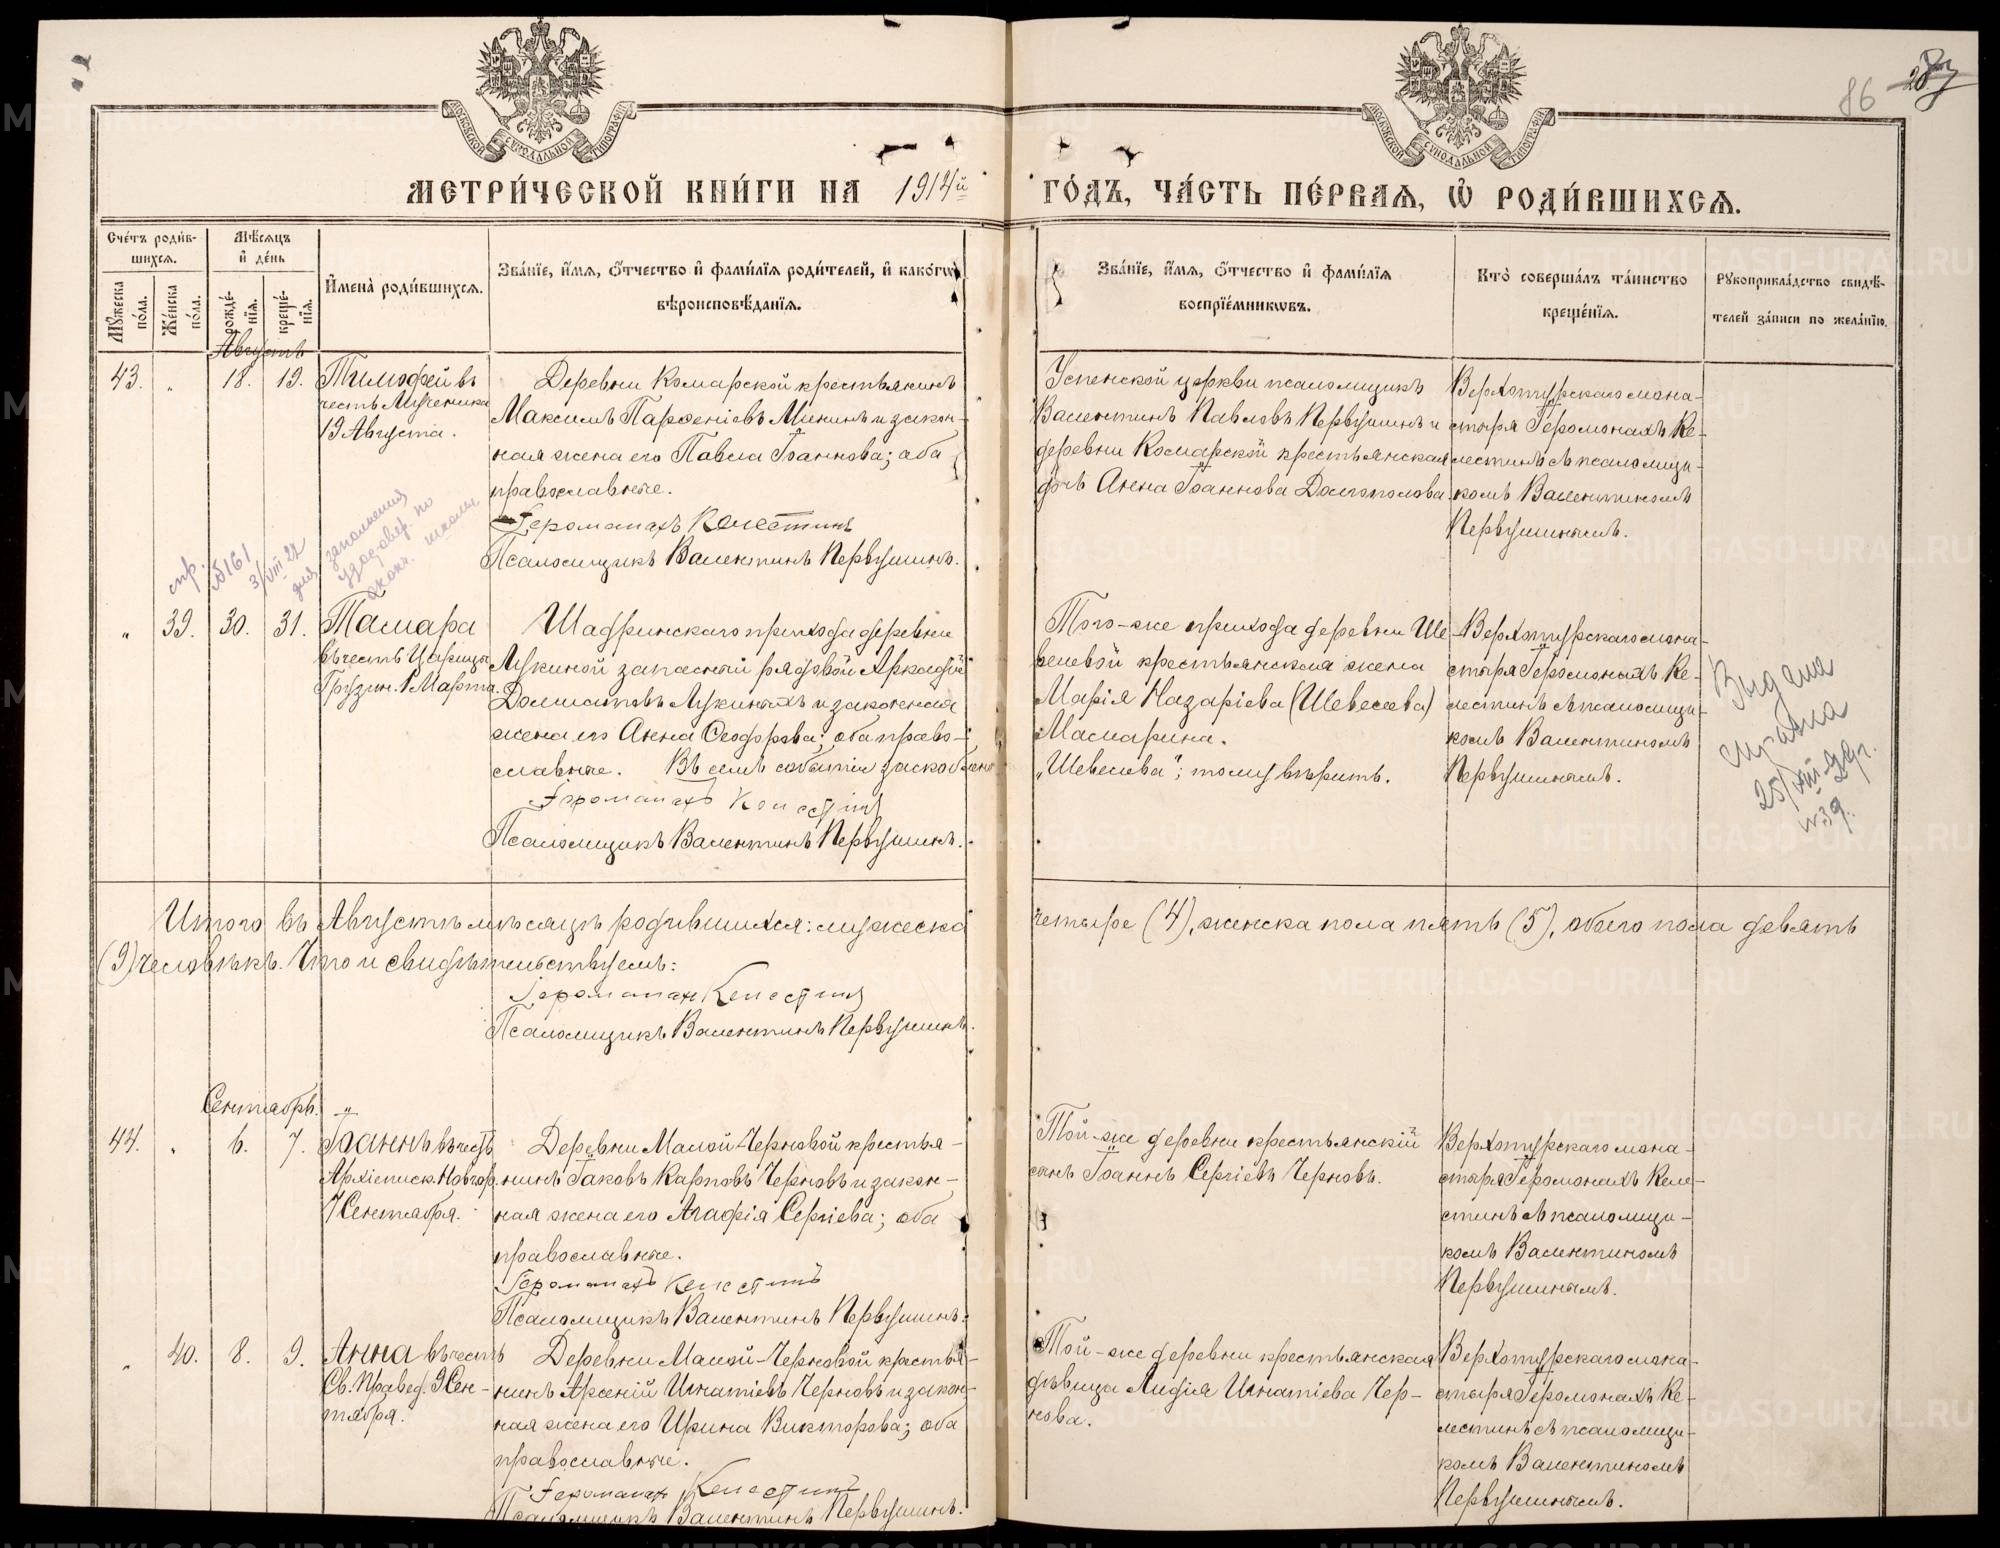 МЕТРИ́ЧЕСКОЙ КНИ́ГИ НА 1914й ГО́ДЪ, ЧА́СТЬ ПЕ́РВАЯ, Ѽ РОДИ́ВШИХСЯ.
86
МОСКОВСКОЙ СѴНОДАЛЬНОЙ ТИПОГРАФІИ
МОСКОВСКОЙ СѴНОДАЛЬНОЙ ТИПОГРАФІИ
Сче́тъ роди́в-
шихся.
Мѣ́сяцъ
и҆ де́нь
Му́жеска
по́ла.
Же́нска
по́ла.
рожде́-
нїя.
креще́-
нїя.
И҆мена̀ роди́вшихся.
Зва́нїе, и҆́мя, ѻ҆́тчество и҆ фами́лїя роди́телей, и҆ како́гѡ
вѣроисповѣ́данїя.
Зва́нїе, и҆́мя, ѻ҆́тчество и҆ фами́лїя
воспрїе́мникѡвъ.
Кто̀ соверша́лъ та́инство
креще́нїя.
Рꙋкоприкла́дство свидѣ́-
телей за́писи по жела́нїю.
Августъ
43. " 18. 19.
Тимофей въ
честь Мученика
19 Августа.
Деревни Комарской крестьянинъ
Максимъ Парѳеніевъ Мининъ и закон-
ная жена его Павла Іоаннова; оба
православные.
Іеромонахъ Келестинъ
Псаломщикъ Валентинъ Первушинъ.
Успенской церкви псаломщикъ
Валентинъ Павловъ Первушинъ и
деревни Комарской крестьянская
дочь Анна Іоаннова Долгополова.
Верхотурскаго мона-
стыря Іеромонахъ Ке-
лестинъ съ псаломщи-
комъ Валентиномъ
Первушинымъ.
спр.
№161
3/VIII 22
для
заполнения
удостовер. по
оконч. школы
" 39. 30. 31.
Тамара
въ честь Царицы
Грузин. 1 Марта.
Шадринскаго прихода деревни
Лукиной запасный рядовой Аркадій
Долматовъ Лукиныхъ и законная
жена его Анна Ѳеодорова; оба право-
славные. Въ семъ событіи заскоблено
Іеромонахъ Келестинъ
Псаломщикъ Валентинъ Первушинъ.
Того-же прихода деревни Ше-
велевой крестьянская жена
Марія Назаріева (Шевелева)
Мамарина.
„Шевелева"; тому вѣрить.
Верхотурскаго мона-
стыря Іеромонахъ Ке-
лестинъ съ псаломщи-
комъ Валентиномъ
Первушинымъ.
Выдана
справка
25/VIII-22г.
№39.
Итого въ Августѣ мѣсяцѣ родившихся: мужеска четыре (4), женска пола пять (5), обоего пола девять
(9) человѣкъ. Что и свидѣтельствуемъ:
Іеромонах Келестинъ
Псаломщикъ Валентинъ Первушинъ.
Сентябрь.
44. " 6. 7.
Іоаннъ въ честь
Архіеписк. Новгор.
7 Сентября.
Деревни Малой-Черновой крестья-
нинъ Іаковъ Карповъ Черновъ и закон-
ная жена его Агафія Сергіева; оба
православные.
Іеромонахъ Келестинъ
Псаломщикъ Валентинъ Первушинъ.
Той-же деревни крестьянскій
сынъ Іоаннъ Сергіевъ Черновъ.
Верхотурскаго мона-
стыря Іеромонахъ Келе-
стинъ съ псаломщи-
комъ Валентиномъ
Первушинымъ.
" 40. 8. 9.
Анна въ честь
Св. Правед. 9 Сен-
тября.
Деревни Малой-Черновой крестья-
нинъ Арсеній Игнатіевъ Черновъ и закон-
ная жена его Ирина Викторова; оба
православные.
Іеромонахъ Келестинъ
Псаломщикъ Валентинъ Первушинъ.
Той-же деревни крестьянская
дѣвица Лидія Игнатіева Чер-
нова.
Верхотурскаго мона-
стыря Іеромонахъ Ке-
лестинъ съ псаломщи-
комъ Валентиномъ
Первушинымъ.
METRIKI.GASO-URAL.RU